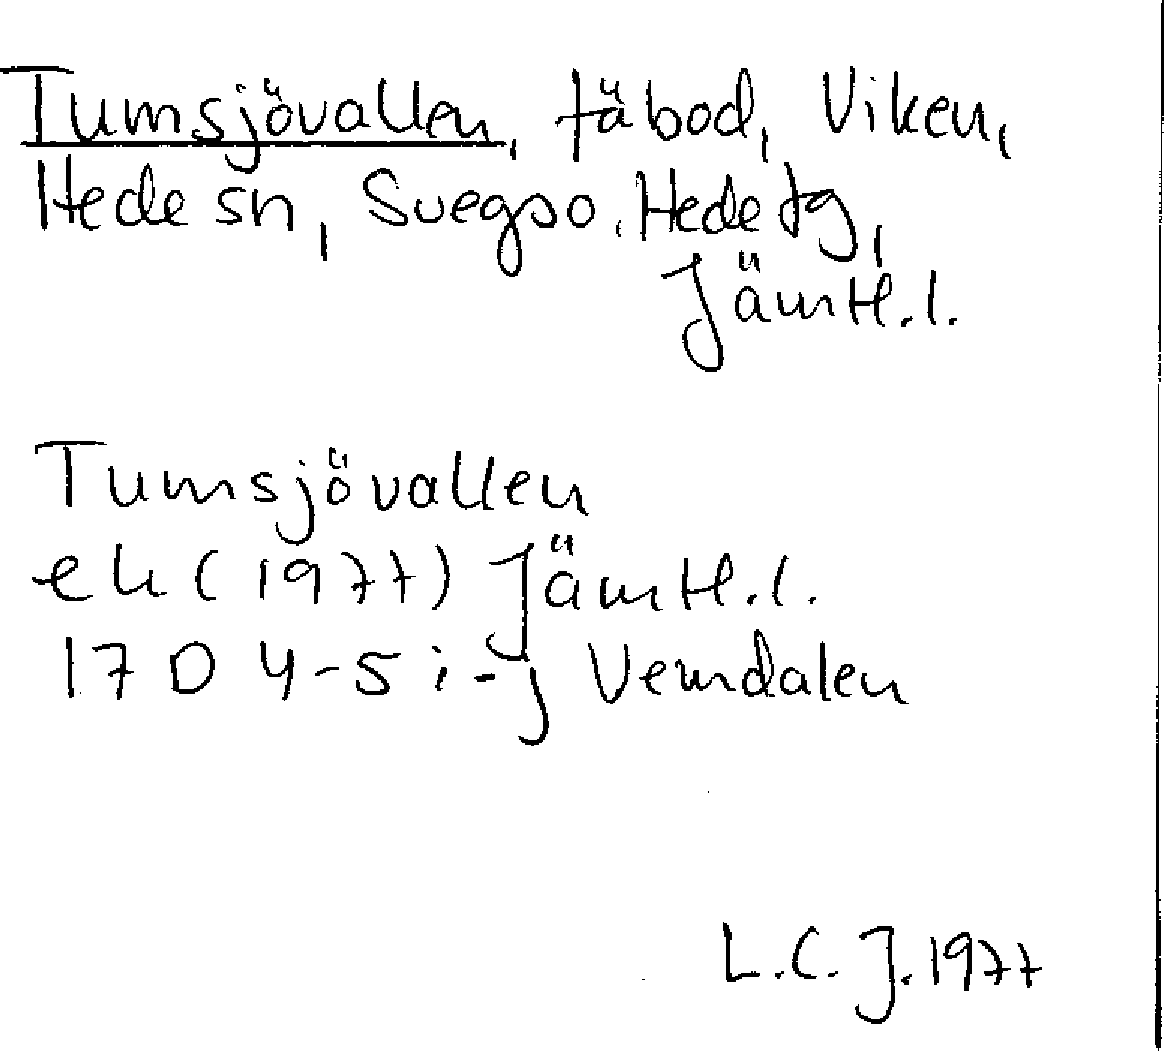 Tumsjövallen, fäbod, Viken,
Hede sn, Svegs o. Hede tg,
Jämtl. l.
Tumsjövallen
ek (1977) Jämtl. l.
17 D 4-5 i-j Vemdalen
L.C.J. 1977